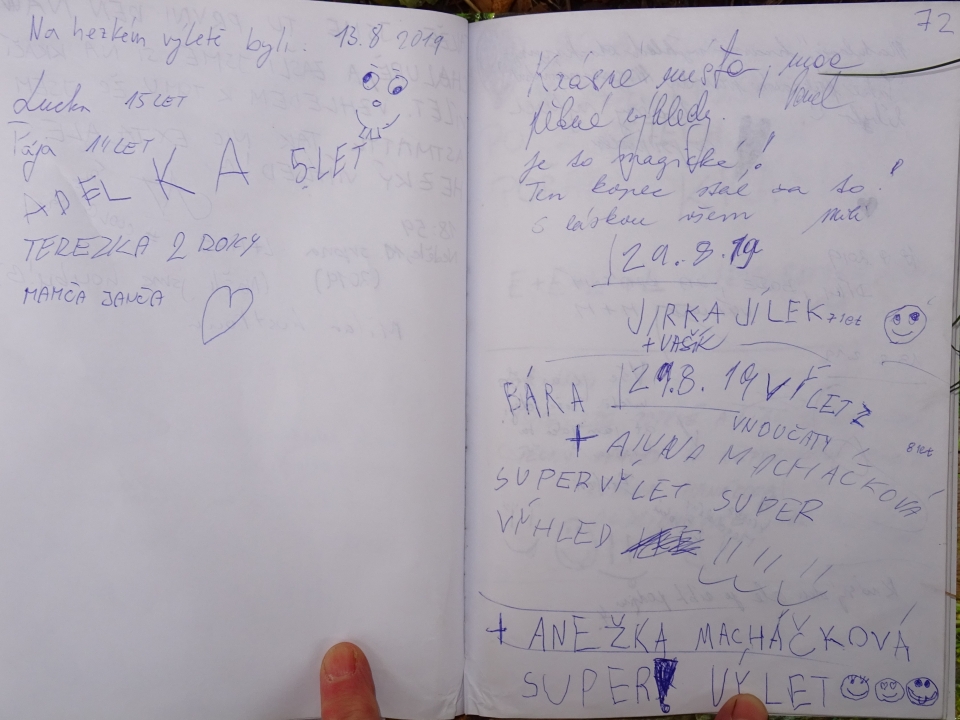 Na hezkém výletě byli. 13.8 2019
Lucka 15 LET
Pája 14 LET
ADELKA 5-LET
TEREZKA 2 ROKY
MAMČA JANČA
72
Krásné místo, moc
pěkné výhledy.
Je to magické!
Ten kopec stál za to!
S láskou všem
29.8.19
JIRKA JÍLEK 7 let
+ VAŠÍK
BÁRA 29.8.19 VÝLET Z
VNOUČATY
+ ANNA MACHÁČKOVÁ 8 let
SUPER VÝLET SUPER
VÝHLED
+ ANEŽKA MACHÁČKOVÁ
SUPER! VÝLET